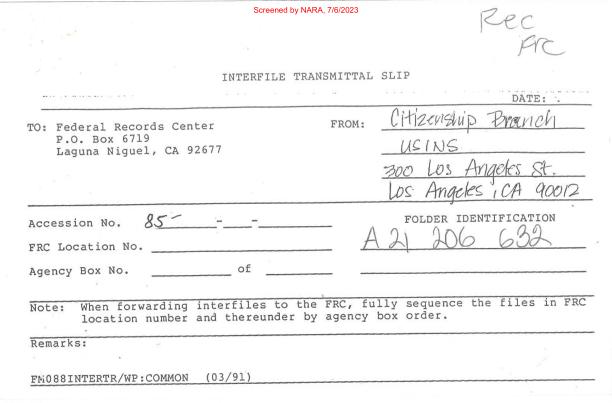 Screened by NARA, 7/6/2023
Rec
FRC
INTERFILE TRANSMITTAL SLIP
DATE:
TO: Federal Records Center
P.O. Box 6719
Laguna Niguel, CA 92677
FROM: Citizenship Branch
USINS
300 Los Angeles St.
Los Angeles, CA 90012
Accession No. 85- - -
FRC Location No.
Agency Box No. of
FOLDER IDENTIFICATION
A 21 206 632
Note: When forwarding interfiles to the FRC, fully sequence the files in FRC
location number and thereunder by agency box order.
Remarks:
FM088INTERTR/WP:COMMON (03/91)